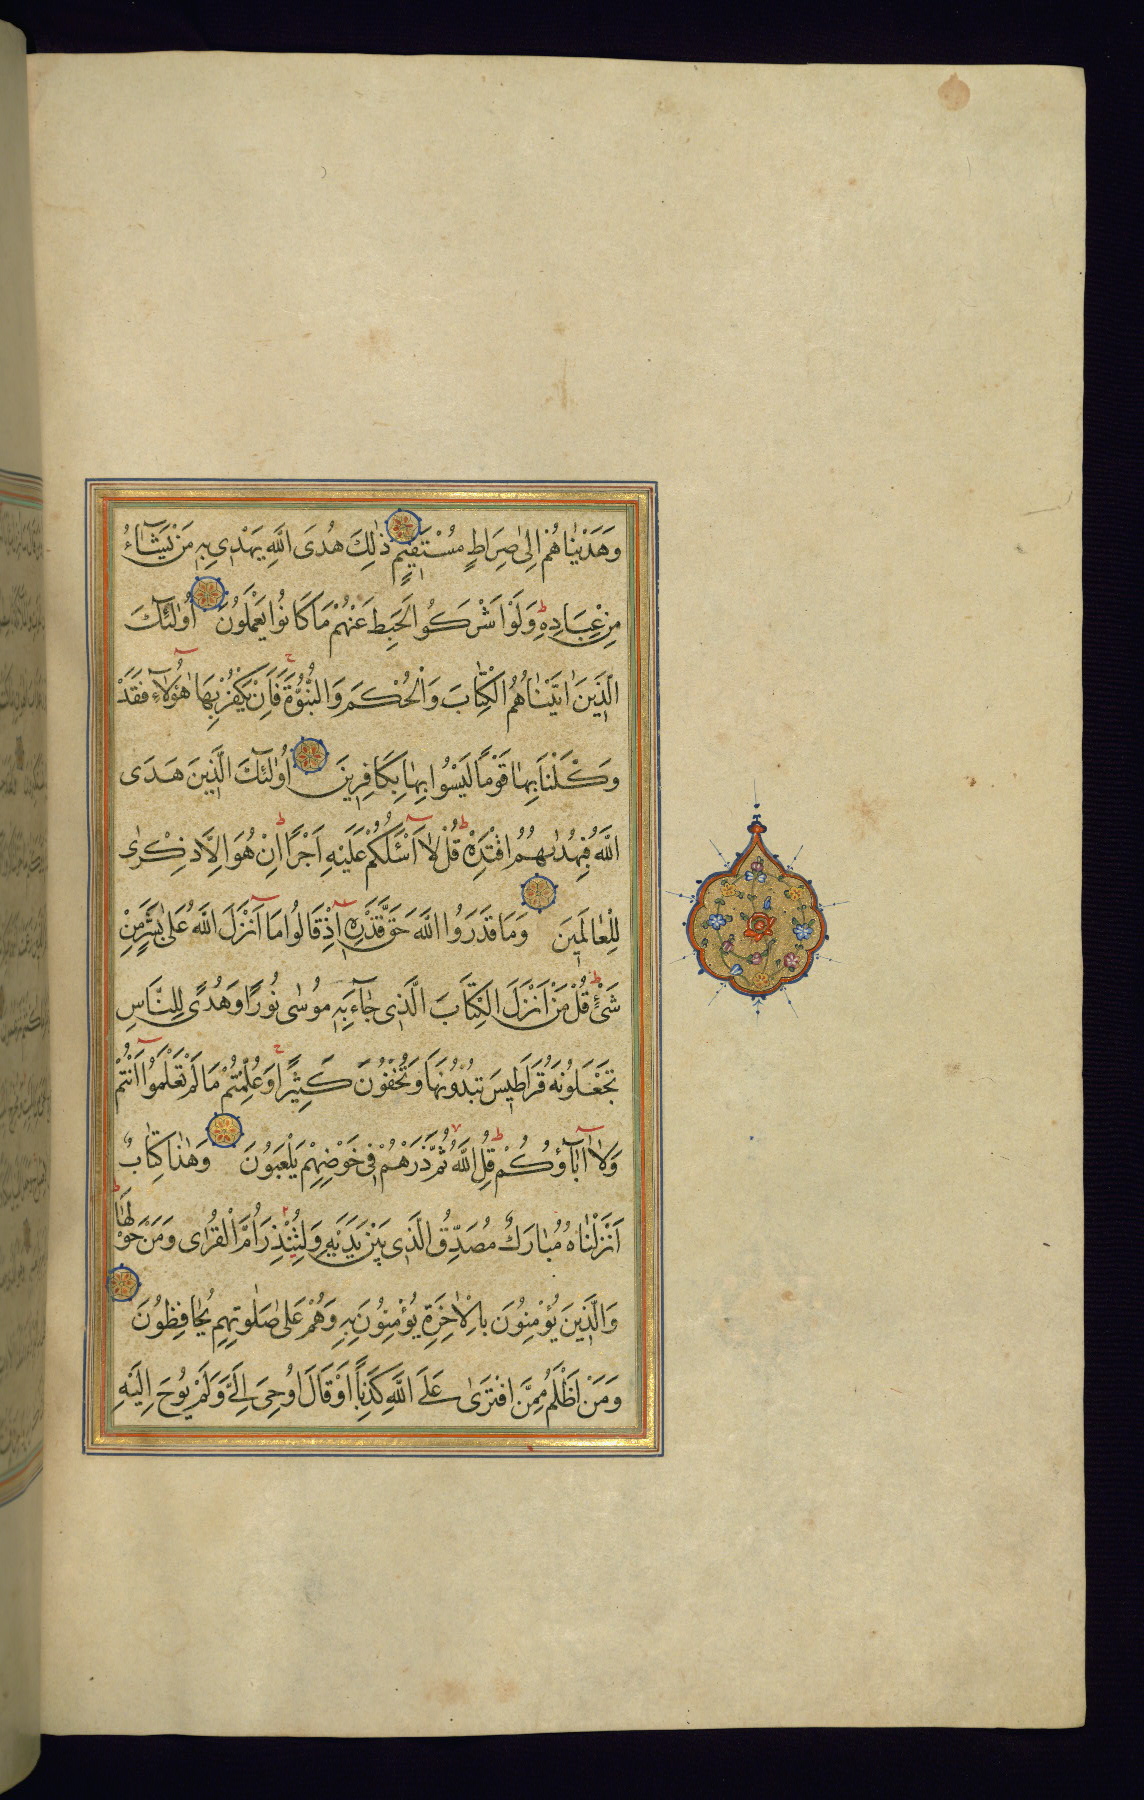 وَهَدَيْنَاهُمْ اِلٰى صِرَاطٍ مُسْتَقِيمٍ ذٰلِكَ هُدَى اللّٰهِ يَهْدِى بِهِ مَنْ يَشَآءُ
مِنْ عِبَادِهِ ط وَلَوْ اَشْرَكُوا لَحَبِطَ عَنْهُمْ مَا كَانُوا يَعْمَلُونَ اُولٰئِكَ
الَّذِينَ اٰتَيْنَاهُمُ الْكِتَابَ وَالْحُكْمَ وَالنُّبُوَّةَ ج فَاِنْ يَكْفُرْ بِهَا هٰؤُلَاۤءِ فَقَدْ
وَكَّلْنَا بِهَا قَوْمًا لَيْسُوا بِهَا بِكَافِرِينَ اُولٰئِكَ الَّذِينَ هَدَى
اللّٰهُ فَبِهُدٰيهُمُ اقْتَدِهْ ط قُلْ لَا اَسْئَلُكُمْ عَلَيْهِ اَجْرًا ط اِنْ هُوَ اِلَّا ذِكْرٰى
لِلْعَالَمِينَ وَمَا قَدَرُوا اللّٰهَ حَقَّ قَدْرِهِ اِذْ قَالُوا مَا اَنْزَلَ اللّٰهُ عَلٰى بَشَرٍ مِنْ
شَىْءٍ ط قُلْ مَنْ اَنْزَلَ الْكِتَابَ الَّذِى جَآءَ بِهِ مُوسٰى نُورًا وَهُدًى لِلنَّاسِ
تَجْعَلُونَهُ قَرَاطِيسَ تُبْدُونَهَا وَتُخْفُونَ كَثِيرًا ج وَعُلِّمْتُمْ مَا لَمْ تَعْلَمُوا اَنْتُمْ
وَلَا اٰبَآؤُكُمْ ط قُلِ اللّٰهُ ثُمَّ ذَرْهُمْ فِى خَوْضِهِمْ يَلْعَبُونَ وَهٰذَا كِتَابٌ
اَنْزَلْنَاهُ مُبَارَكٌ مُصَدِّقُ الَّذِى بَيْنَ يَدَيْهِ وَلِتُنْذِرَ اُمَّ الْقُرٰى وَمَنْ حَوْلَهَا ط
وَالَّذِينَ يُؤْمِنُونَ بِالْاٰخِرَةِ يُؤْمِنُونَ بِهِ وَهُمْ عَلٰى صَلٰوتِهِمْ يُحَافِظُونَ
وَمَنْ اَظْلَمُ مِمَّنِ افْتَرٰى عَلَى اللّٰهِ كَذِبًا اَوْ قَالَ اُوحِىَ اِلَىَّ وَلَمْ يُوحَ اِلَيْهِ